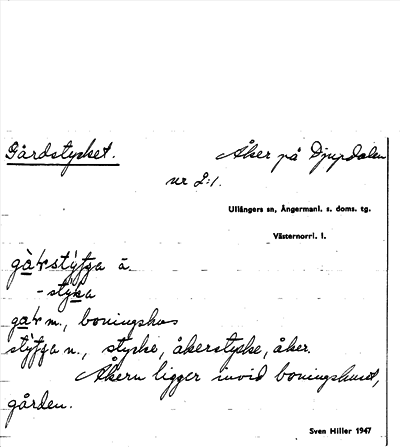 Gårdstycket. Åker på Djupdalen
nr 2:1.
Ullångers sn, Ångermanl. s. doms. tg.
Västernorrl. l.
m., boningshus
n., stycke, åkerstycke, åker.
Åkern ligger invid boningshuset,
gården.
Sven Hiller 1947